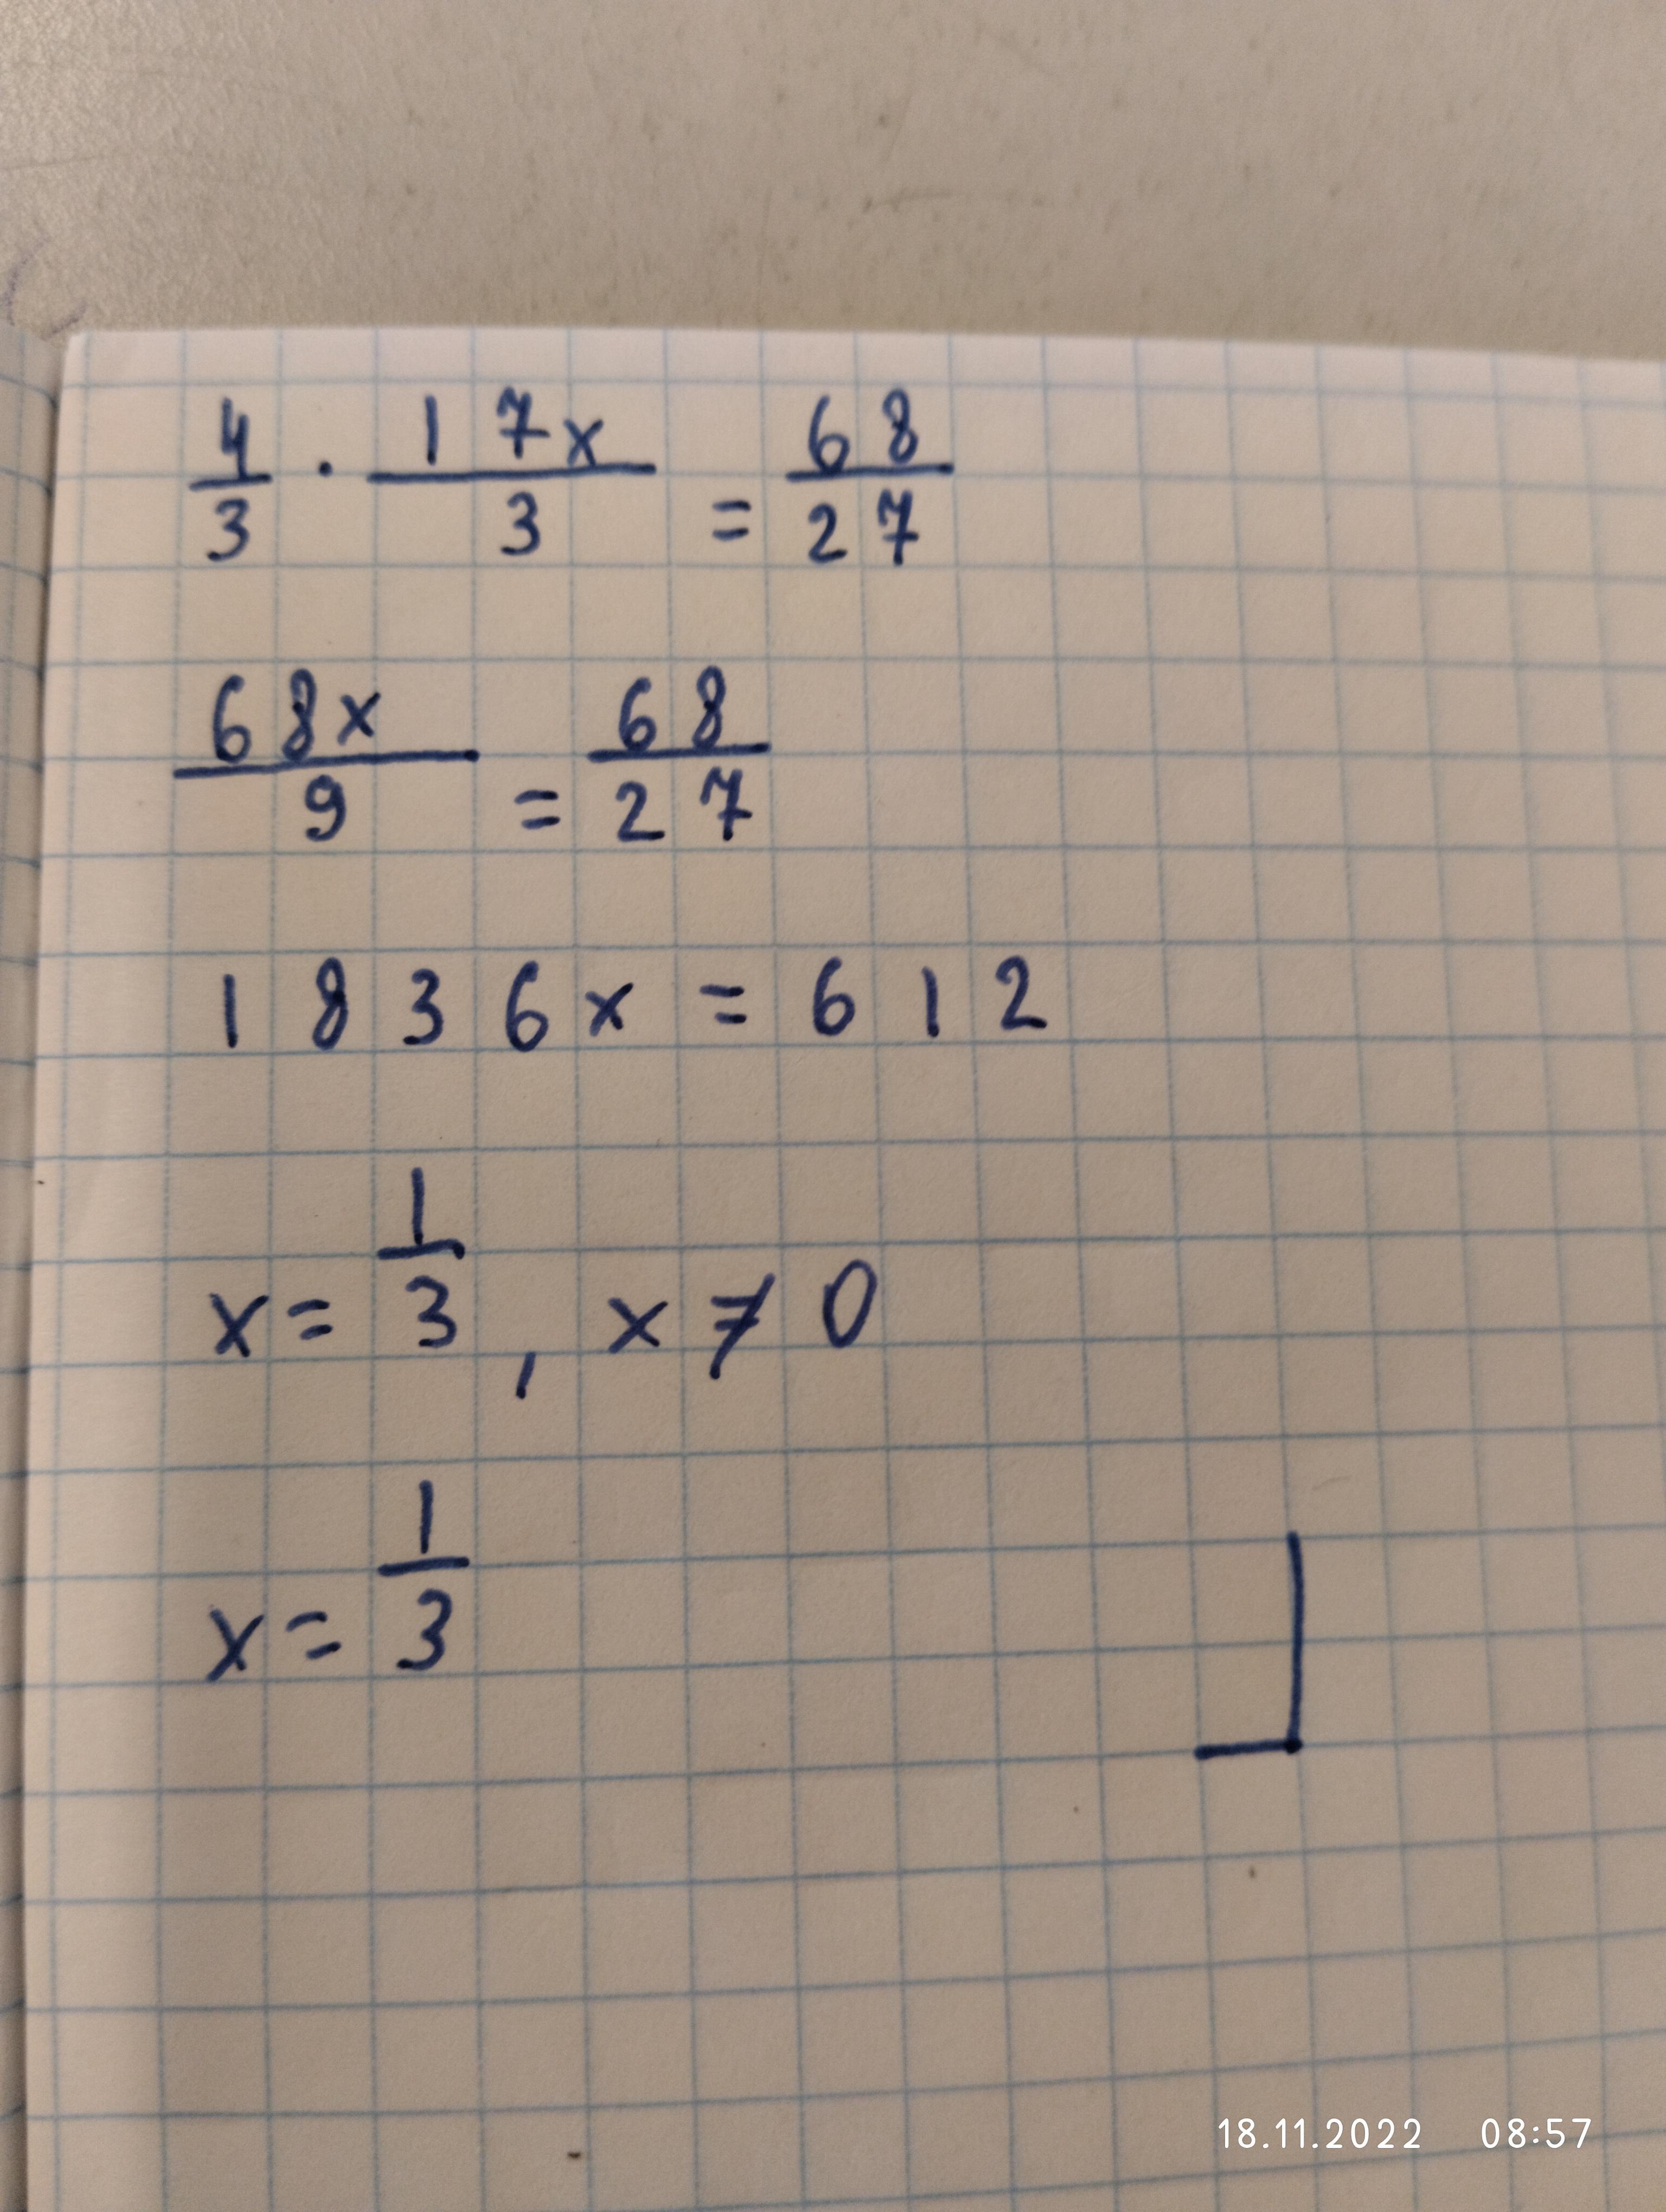 4/3 · 17x/3 = 68/27
68x/9 = 68/27
1836x = 612
x = 1/3, x ≠ 0
x = 1/3
18.11.2022 08:57